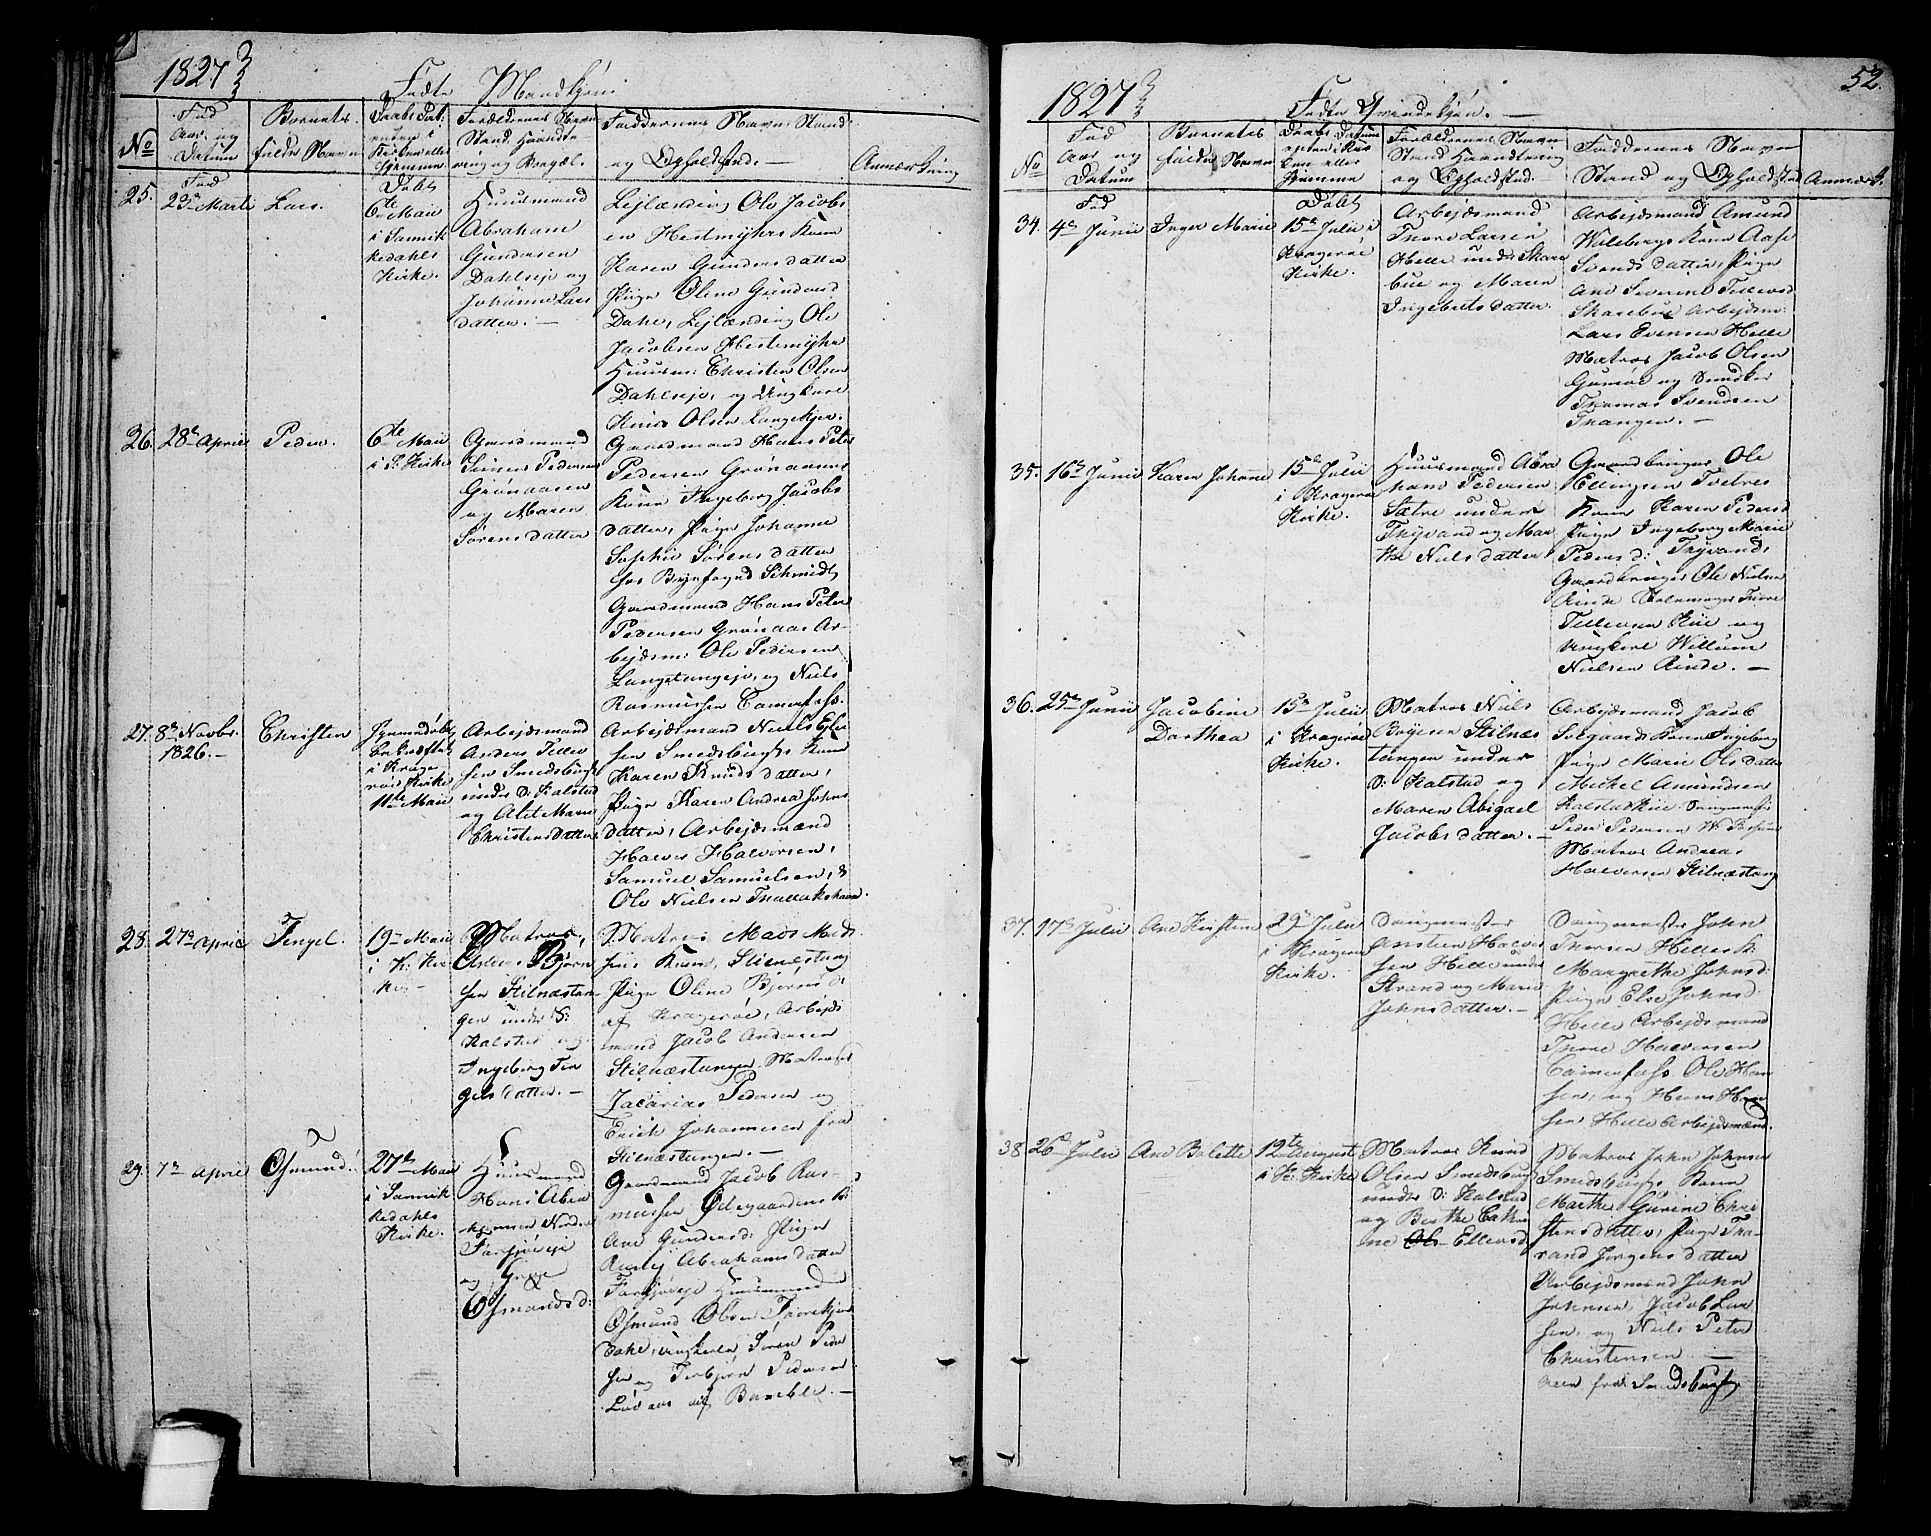 1827
Fødte Mandkjøn
No
Fød Aar og Datum
Barnets fulde Navn
Forældrenes Navn Stand Haandte ring og Boepæl.
Faddernes Navn Stand og Opholdsted. —
Anmærkning
25.
Fød 23de Marti
Lars.
Døbt
6te Maii
i Sannik
kedahls
Kirke.
Huusmand
Abraham
Gundersen
Dahlseje og
Johanne Lars
datter. —
Lejlænding Ole Jacobs
en Hestmyhrs Kone
Karen Gunders datter
Pige Oline Gundersd
Dahl, Lejlænding Ole
Jacobsen Hestmyhr
Huusm: Christen Olsen
Dahlseje, og Ungkarl
Knud Olsen Langekjer.
26.
28de April
Peder.
6te Maii
i S: Kirke
Gaardmand
Simen Pedersen
Grønaasen
og Maren
Sørens datter
Gaardmand Hans Peter
Pedersen Grønaasens
Kone Ingeborg Jacobs
datter, Pige Johanne
Sophie Sørens datter
hos Byefogd Schmidt
Gaardmand Hans Peter
Pedersen Grønaas Ar-
bejdsm: Ole Pedersen
Langetangeje, og Niels
Rasmussen Camerfos.
27.
8de Novbr.
1826. —
Christen
Hjemmedøbt
bekræftet
i Krage
røes Kirke
11te Maii
Arbejdsmand
Anders Tellef
sen Smedsbugt
under D: Kalstad
og Alet Marie
Christens datter
Arbejdsmand Niels Elef
sen Smedsbugts Kone
Karen Knuds datter,
Pige Karen Andrea Johns
datter, Arbejdsmænd
Halvor Halvorsen,
Samuel Samuelsen, &
Ole Nielsen Tallakshavn.
28.
27de April
Tengel.
19de Maii
i K: Kir
ke —
Matros,
Bjørn
sen Stilnæstan-
gen under D:
Kalstad og
Ingeborg Ten
gels datter. —
Matros Mads Mads
sens Kone, Stilnæstang
Pige Oline Bjørns d:
af Kragerøe, Arbejds
mand Jacob Andersen
Stilnæstangen, Matroser
Zacarias Pedersen og
Erich Johannesen fra
Stilnæstangen. —
29.
7de April
Osmund.
27de Maii
i Sannik
kedahls
Kirke.
Huusmand
Hans Abra
hamsen Nordre
Farsjøeje
og
Osmunds d:
Gaardmand Jacob Ras-
mussen Ødegaardens K:
Ane Gundersd: Pige
Abrahams datter
Farsjøeje Huusmand
Osmund Olsen
Dahl, Ungkarle Søren Peder
sen og Torbjørn Pedersen
af Bamble. —
52.
1827
Fødte Qvindekjøn. —
No
Fød Aar og Datum
Barnetes fulde Navn
Daabs Datum enten i Kir ken eller Hjemme
Forældrenes Navn Stand Haandtering og Opholdstad.
Faddernes Navn Stand og Opholdstad
Anmærk.
34.
Fød
4de Junii
Inger Marie
Døbt
15de Julii i
Kragerøe
Kirke.
Arbejdsmand
Thore Larsen
Helle under Skare
bue og Maren
Ingebrets datter.
Arbejdsmand Amund
Wibergs Kone Aase
Svends datter, Pige
Ane Severine Tellevsd
Skarebue Arbejdsm:
Lars Evensen Helle
Matros Jacob Olsen
Gumøe og Snedker
Thomas Svendsen
Tangen. —
35.
16de Junii
Karen Johanne
15de Julii
i Kragerøe
Kirke.
Huusmand Abra
ham Pedersen
Sætre under
Thyvand og Mar
the Niels datter
Gaardbruger Ole
Ellingsen Tveites
Kone Karen Pedersd
Pige Ingeborg Marie
Peders d: Thyvand,
Gaardbruger Ole Nielsen
Rinde Thore
Tellevsen og
Ungkarl Willum
Nielsen Rinde. —
36.
25de Junii
Jacobine
Dorthea
15de Julii
i Kragerøe
Kirke.
Matros Niels
Bøyesen Stilnæs
tangen under
D: Kalstad og
Maren Abigael
Jacobs datter. —
Arbejdsmand Jacob
Solgaards Kone Ingeborg
Pige Marie Ols datter
Mickel Amundsen
Peder Pedersen
Matros Andreas
Halvorsen Stilnæstang
37.
17de Julii
Ane Kirstine
29de Julii
i Kragerøe
Kirke.
Saugmester
Halvor
sen Helle under
Strand og Maren
Johnsdatter. —
Saugmester John
Thorsen Helles K:
Margrethe Johnsd:
Pige Else Johnsd:
Helle Arbejdsmand
Thore Halvorsen
Camerfos. Ole Han
sen, og Hans Han
sen Helle Arbejdsmænd.
38.
26de Julii
Ane Bolette
12te August
i K: Kirke
Matros Knud
Olsen Smedsbugt
under D: Kalstad
og Berthe Cathri
ne Ellevsd
Matros John Johnsen
Smedsbugts Kone
Marthe Gurine Chri
stens datter, Pige Tho-
rand Jørgens datter
Arbejdsmand John
Johnsen, Jacob Lar
sen, og Niels Peter
Christensen —
alle fra Smedsbugt